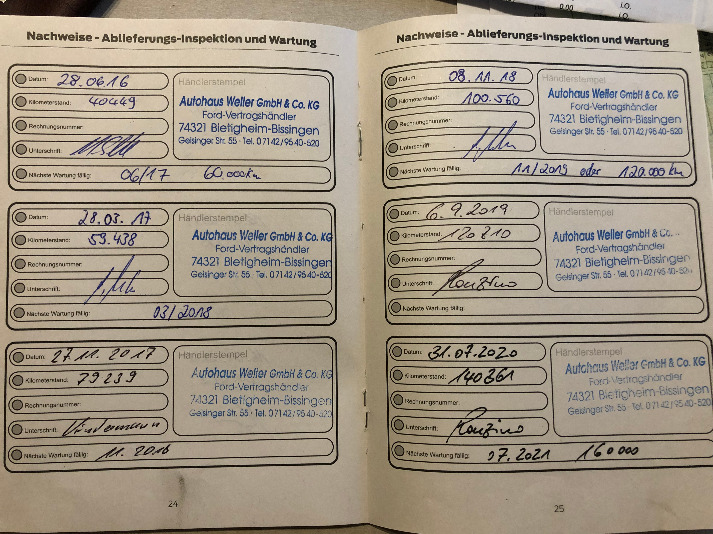 0.00 i.O.
i.O.
Nachweise - Ablieferungs-Inspektion und Wartung
Datum: 28.06.16
Kilometerstand: 40449
Rechnungsnummer:
Unterschrift:
Nächste Wartung fällig: 06/17 60.000km
Händlerstempel
Autohaus Weller GmbH & Co. KG
Ford-Vertragshändler
74321 Bietigheim-Bissingen
Geisinger Str. 55 · Tel. 07142/9540-520
Datum: 28.03.17
Kilometerstand: 59.438
Rechnungsnummer:
Unterschrift:
Nächste Wartung fällig: 03/2018
Händlerstempel
Autohaus Weller GmbH & Co. KG
Ford-Vertragshändler
74321 Bietigheim-Bissingen
Geisinger Str. 55 · Tel. 07142/9540-520
Datum: 27.11.2017
Kilometerstand: 79239
Rechnungsnummer:
Unterschrift:
Nächste Wartung fällig: 11.2018
Händlerstempel
Autohaus Weller GmbH & Co. KG
Ford-Vertragshändler
74321 Bietigheim-Bissingen
Geisinger Str. 55 · Tel. 07142/9540-520
24
Nachweise - Ablieferungs-Inspektion und Wartung
Datum: 08.11.18
Kilometerstand: 100.560
Rechnungsnummer:
Unterschrift:
Nächste Wartung fällig: 11/2019 oder 120.000 km
Händlerstempel
Autohaus Weller GmbH & Co. KG
Ford-Vertragshändler
74321 Bietigheim-Bissingen
Geisinger Str. 55 · Tel. 07142/9540-520
Datum: 6.9.2019
Kilometerstand: 120810
Rechnungsnummer:
Unterschrift:
Nächste Wartung fällig:
Händlerstempel
Autohaus Weller GmbH & Co.
Ford-Vertragshändler
74321 Bietigheim-Bissingen
Geisinger Str. 55 · Tel. 07142/9540-520
Datum: 31.07.2020
Kilometerstand: 140361
Rechnungsnummer:
Unterschrift:
Nächste Wartung fällig: 07.2021 160000
Händlerstempel
Autohaus Weller GmbH & Co. KG
Ford-Vertragshändler
74321 Bietigheim-Bissingen
Geisinger Str. 55 · Tel. 07142/9540-520
25